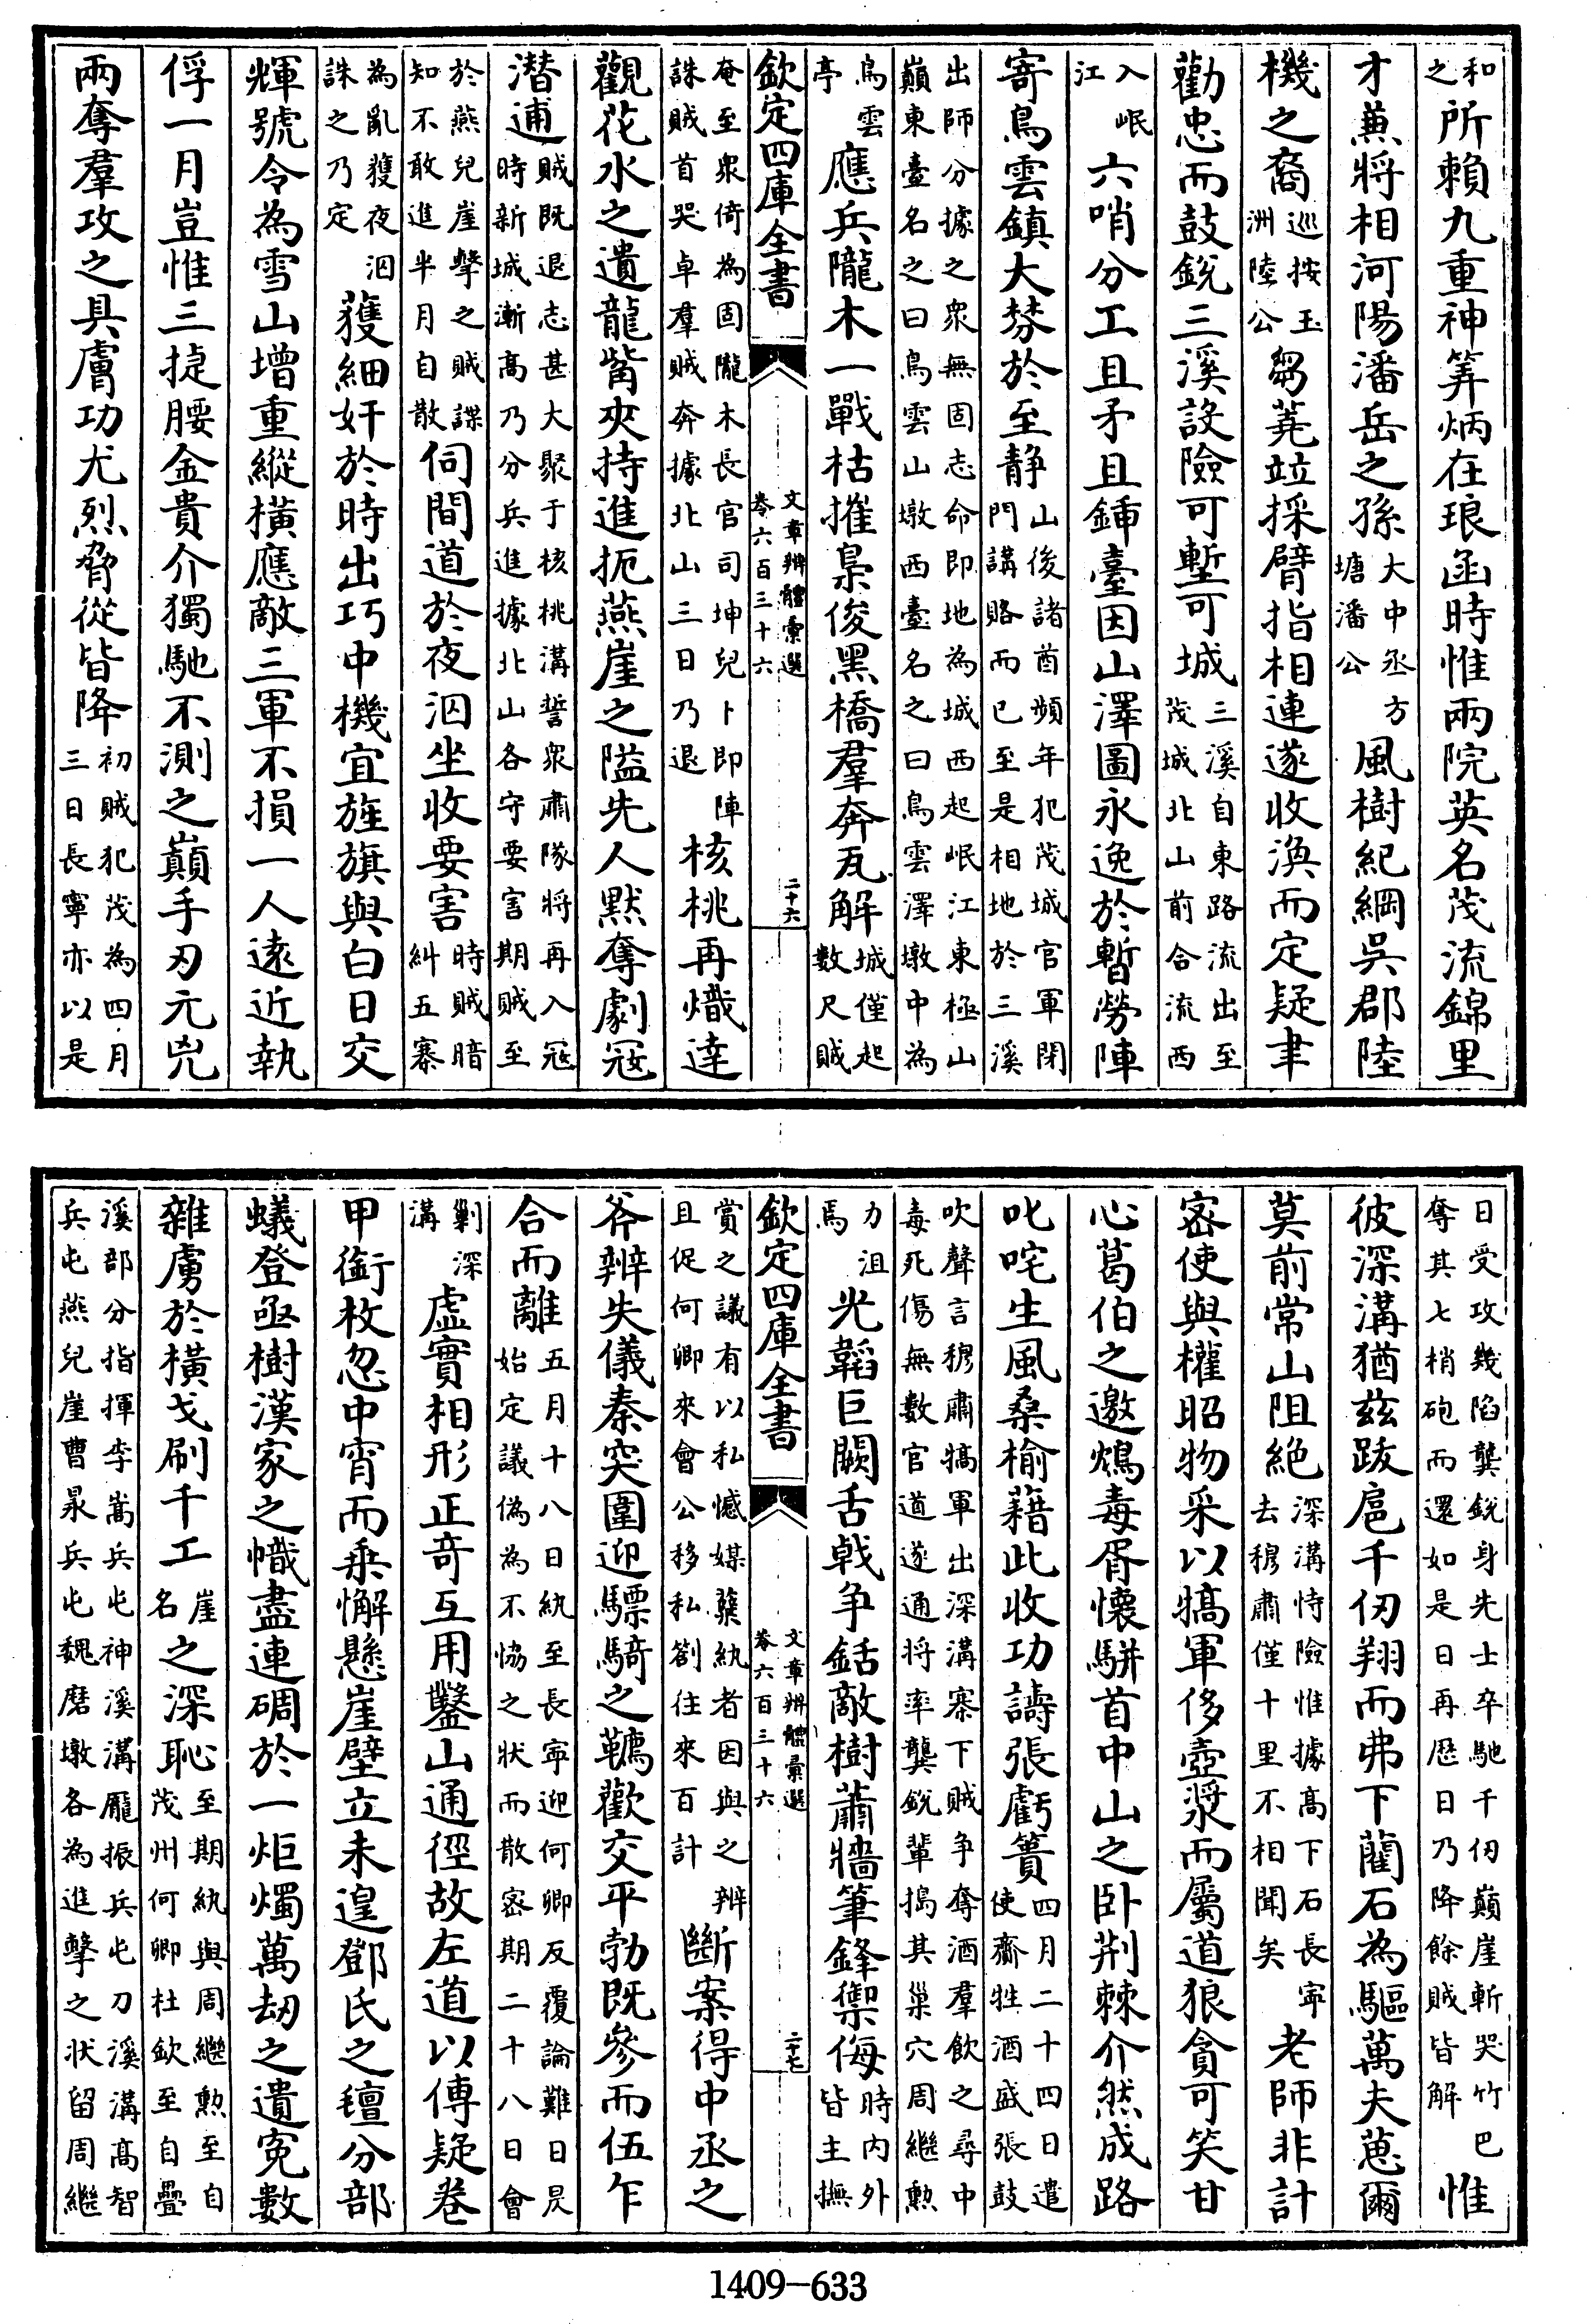 和之所賴九重神筭炳在琅函時惟兩院英名茂流錦里
才兼將相河陽潘岳之孫大中丞方塘潘公風樹紀綱吳郡陸
機之裔巡按玉洲陸公芻蕘竝採臂指相連遂收渙而定疑聿
勸忠而鼓銳三溪設險可塹可城三溪自東路流出至茂城北山前合流西
入岷江六哨分工且矛且鍤臺因山澤圖永逸於暫勞陣
寄鳥雲鎮大棼於至静山後諸酋頻年犯茂城官軍閉門講賂而已至是相地於三溪
出師分據之眾無固志命即地為城西起岷江東極山巔東臺名之曰鳥雲山墩西臺名之曰鳥雲澤墩中為
鳥雲亭應兵隴木一戰枯摧梟俊黑橋羣奔瓦解城僅起數尺賊
欽定四庫全書
文章辨體彙選
卷六百三十六
二十六
奄至眾倚為固隴木長官司坤兒卜即陣誅賊首哭卓羣賊奔據北山三日乃退核桃再熾達
觀花水之遺龍觜夾持進扼燕崖之隘先人黙奪劇冦
潜逋賊既退志甚大聚于核桃溝誓眾肅隊將再入冦時新城漸高乃分兵進據北山各守要害期賊至
於燕兒崖擊之賊諜知不敢進半月自散伺間道於夜泅坐收要害時賊暗糾五寨
為亂獲夜泅誅之乃定獲細奸於時出巧中機宜旌旗與白日交
輝號令為雪山增重縱橫應敵三軍不損一人遠近執
俘一月豈惟三捷腰金貴介獨馳不測之巔手刃元兇
兩奪羣攻之具膚功尤烈脅從皆降初賊犯茂為四月三日長寧亦以是
日受攻幾陷龔銳身先士卒馳千仞巔崖斬哭竹巴奪其七梢砲而還如是日再歴日乃降餘賊皆解惟
彼深溝猶兹跋扈千仞翔而弗下藺石為驅萬夫葸爾
莫前常山阻絶深溝恃險惟據高下石長寧去穆肅僅十里不相聞矣老師非計
密使與權昭物采以犒軍侈壺漿而屬道狼貪可笑甘
心葛伯之邀鴆毒胥懷駢首中山之卧荆棘介然成路
叱咤生風桑榆藉此收功譸張虧簣四月二十四日遣使齋牲酒盛張鼓
吹聲言穆肅犒軍出深溝寨下賊争奪酒羣飲之尋中毒死傷無數官道遂通將率龔銳輩搗其巢穴周繼勲
力沮焉光韜巨闕舌戟争銛敵樹蕭牆筆鋒禦侮時内外皆主撫
欽定四庫全書
文章辨體彙選
卷六百三十六
二十七
賞之議有以私憾媒蘖紈者因與之辨且促何卿來會公移私劄往來百計斷案得中丞之
斧辨失儀秦突圍迎驃騎之韉歡交平勃既參而伍乍
合而離五月十八日紈至長寧迎何卿反覆論難日昃始定議偽為不恊之狀而散密期二十八日會
剿深溝虛實相形正竒互用鑿山通徑故左道以傳疑卷
甲銜枚忽中宵而乘懈懸崖壁立未遑鄧氏之氊分部
蟻登亟樹漢家之幟盡連碉於一炬燭萬刼之遺寃數
雜虜於橫戈刷千工崖名之深恥至期紈與周繼勲至自茂州何卿杜欽至自疊
溪部分指揮李嵩兵屯神溪溝龎振兵屯刀溪溝高智兵屯燕兒崖曹晟兵屯魏磨墩各為進擊之状留周繼
1409-633